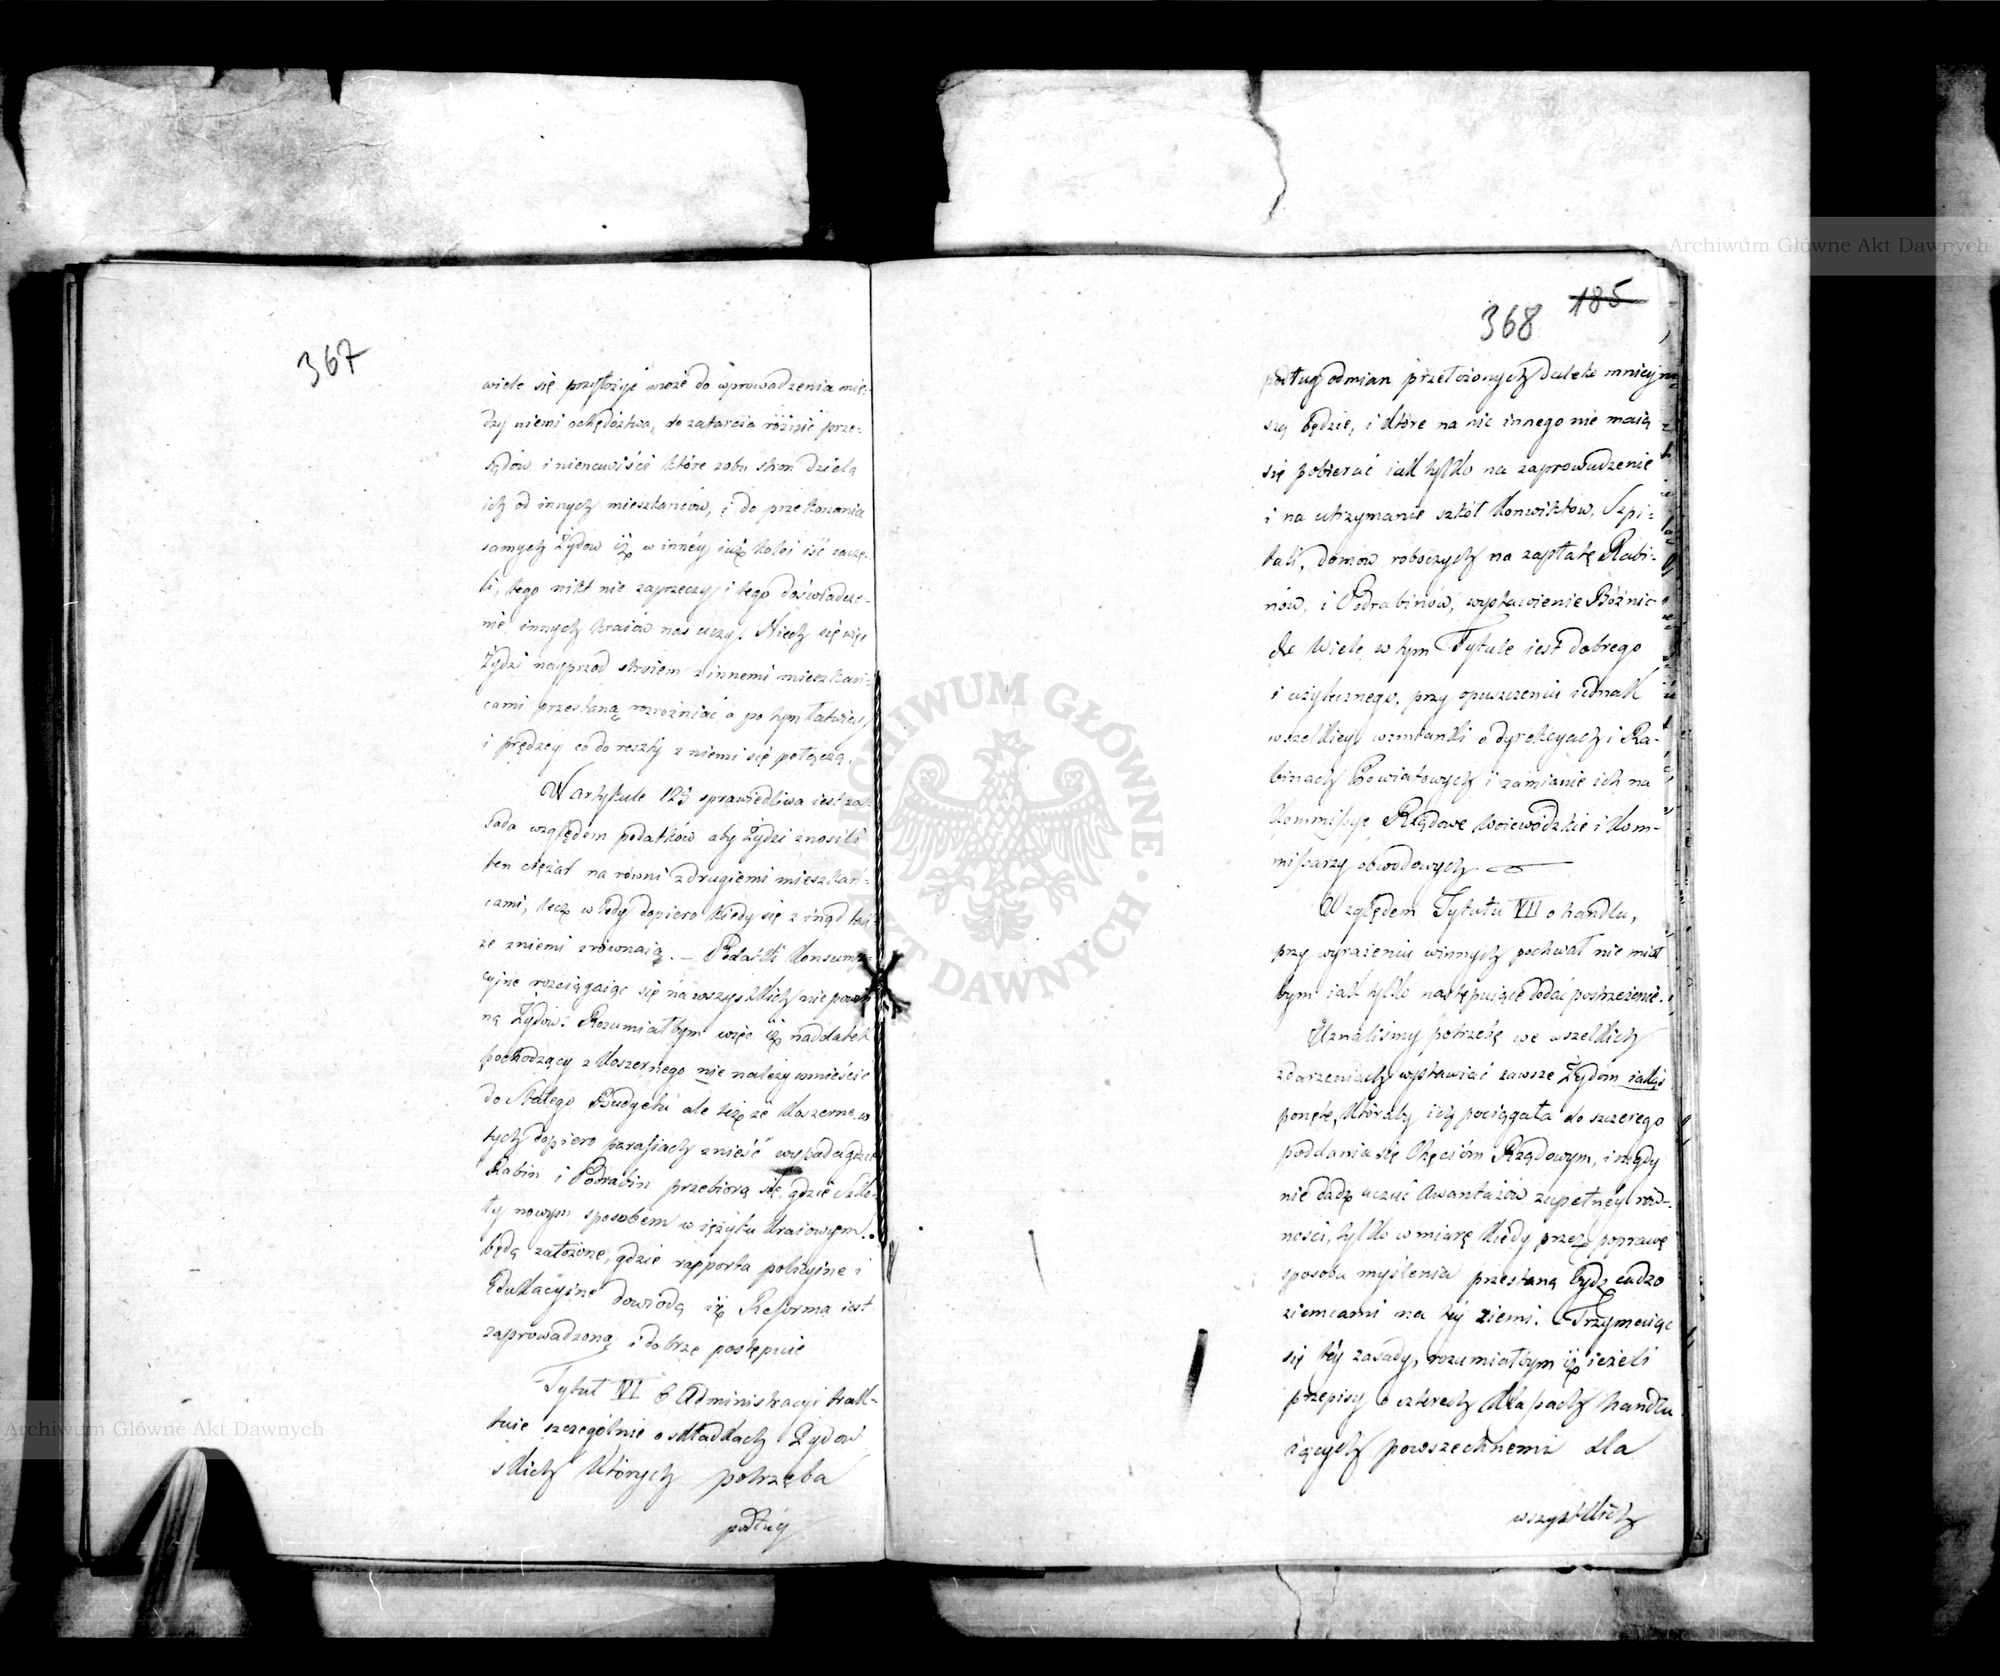 367
wiele się przyłożyć może do wprowadzenia mię-
dzy niemi ochędóztwa, do zatarcia różnic prze-
sądów i nienawiści które zobu stron dzielą
ich od innych mieszkańców, i do przekonania
samych Żydow iż w inney iuż kolei iść zaczę-
li, tego nikt nie zaprzeczy i tego doświadcze-
nie innych kraiów nas uczy. Niech się więc
Żydzi nayprzod stroiem z innemi mieszkań-
cami przestaną rozróżniać a po tym łatwiey
i prędzey co do reszty z niemi się połączą.
W artykule 123 sprawiedliwa iest za-
sada względem podatków aby Żydzi znosili
ten ciężar na równi z drugiemi mieszkań-
cami, lecz wtedy dopiero kiedy się z inąd tak
że z niemi zrównaią. — Podatki konsump-
cyjne rozciągaiąc się na wszystkich nie powin
ną Żydów. Rozumiałbym więc iż naddatek
pochodzący z koszernego nie należy wmieścić
do Stałego Budgetu ale też że koszerne w
tych dopiero parafiach znieść wypada gdzie
Rabin i Podrabin przebiorą się, gdzie szko-
ły nowym sposobem w ięzyku kraiowym
będą założone, gdzie rapporta policyine i
Edukacyine dowiodą iż Reforma iest
zaprowadzoną i dobrze postępuie
Tytuł VI o Administracyi trak-
tuie szczególnie o składkach Żydow
skich których potrzeba
podług
368 185
podług odmian przełożonych daleko mnieysza
szą będzie, i które na nic innego nie maią
się pobierać iak tylko na zaprowadzenie
i na utrzymanie szkół konwiktow, Szpi-
tali, domow roboczych na zapłatę Rabi-
nów, i Podrabinow, wystawienie Bóżnic
&c Wiele w tym Tytule iest dobrego
i użytecznego, przy opuszczeniu iednak
wszelkiey wzmianki o dyrekcyach i Ra-
binach Powiatowych i zamianie ich na
Kommissye Rządowe Woiewódzkie i Kom-
missarzy obwodowych.
Względem Tytułu VII o handlu,
przy wyrażeniu winnych pochwał nie miał
bym iak tylko następuiące dodać postrzeżenie.
Uznaliśmy potrzebę we wszelkich
zdarzeniach wystawiać zawsze Żydom iakąś
ponętę, któraby ich pociągała do szczerego
poddania się Chęcióm Rządowym, i nigdy
nie dadź uczuć Awantażów zupełney rów-
ności, tylko w miarę kiedy przez poprawę
sposobu myślenia przestaną bydź cudzo
ziemcami na tey ziemi. Trzymaiąc
się tey zasady, rozumiałbym iż ieżeli
przepisy o czterech klassach handlu
iących powszechnemi dla
wszystkich
Archiwum Główne Akt Dawnych
ARCHIWUM GŁÓWNE AKT DAWNYCH
Archiwum Główne Akt Dawnych